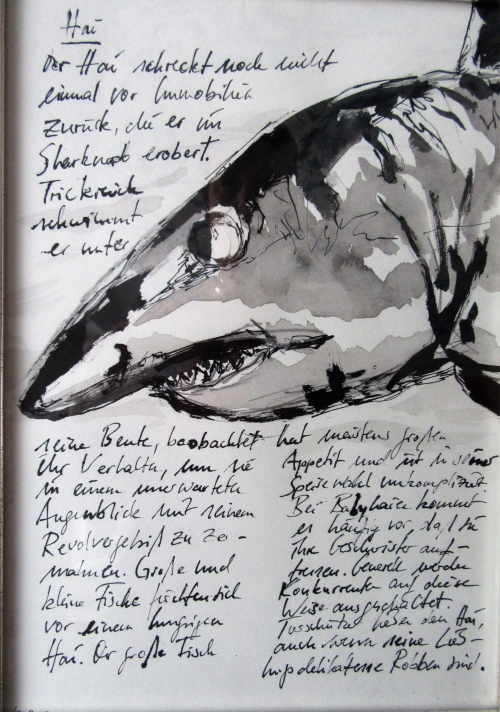 Hai
Der Hai schreckt noch nicht
einmal vor Immobilien
zurück, die er im
Sharknado erobert.
Trickreich
schwimmt
er unter
seine Beute, beobachtet
ihr Verhalten, um sie
in einem unerwarteten
Augenblick mit seinem
Revolvergebiß zu ze-
malmen. Große und
kleine Fische fürchten sich
vor einem hungrigen
Hai. Der große Fisch
hat meistens großen
Appetit und ist in seiner
Speisewahl unkompliziert.
Bei Babyhaien kommt
es häufig vor, daß sie
ihre Geschwister auf-
fressen. Generell werden
Konkurrenten auf diese
Weise ausgeschaltet.
Tierschützer lieben den Hai,
auch wenn seine Lieb-
lingsdelikatesse Robben sind.